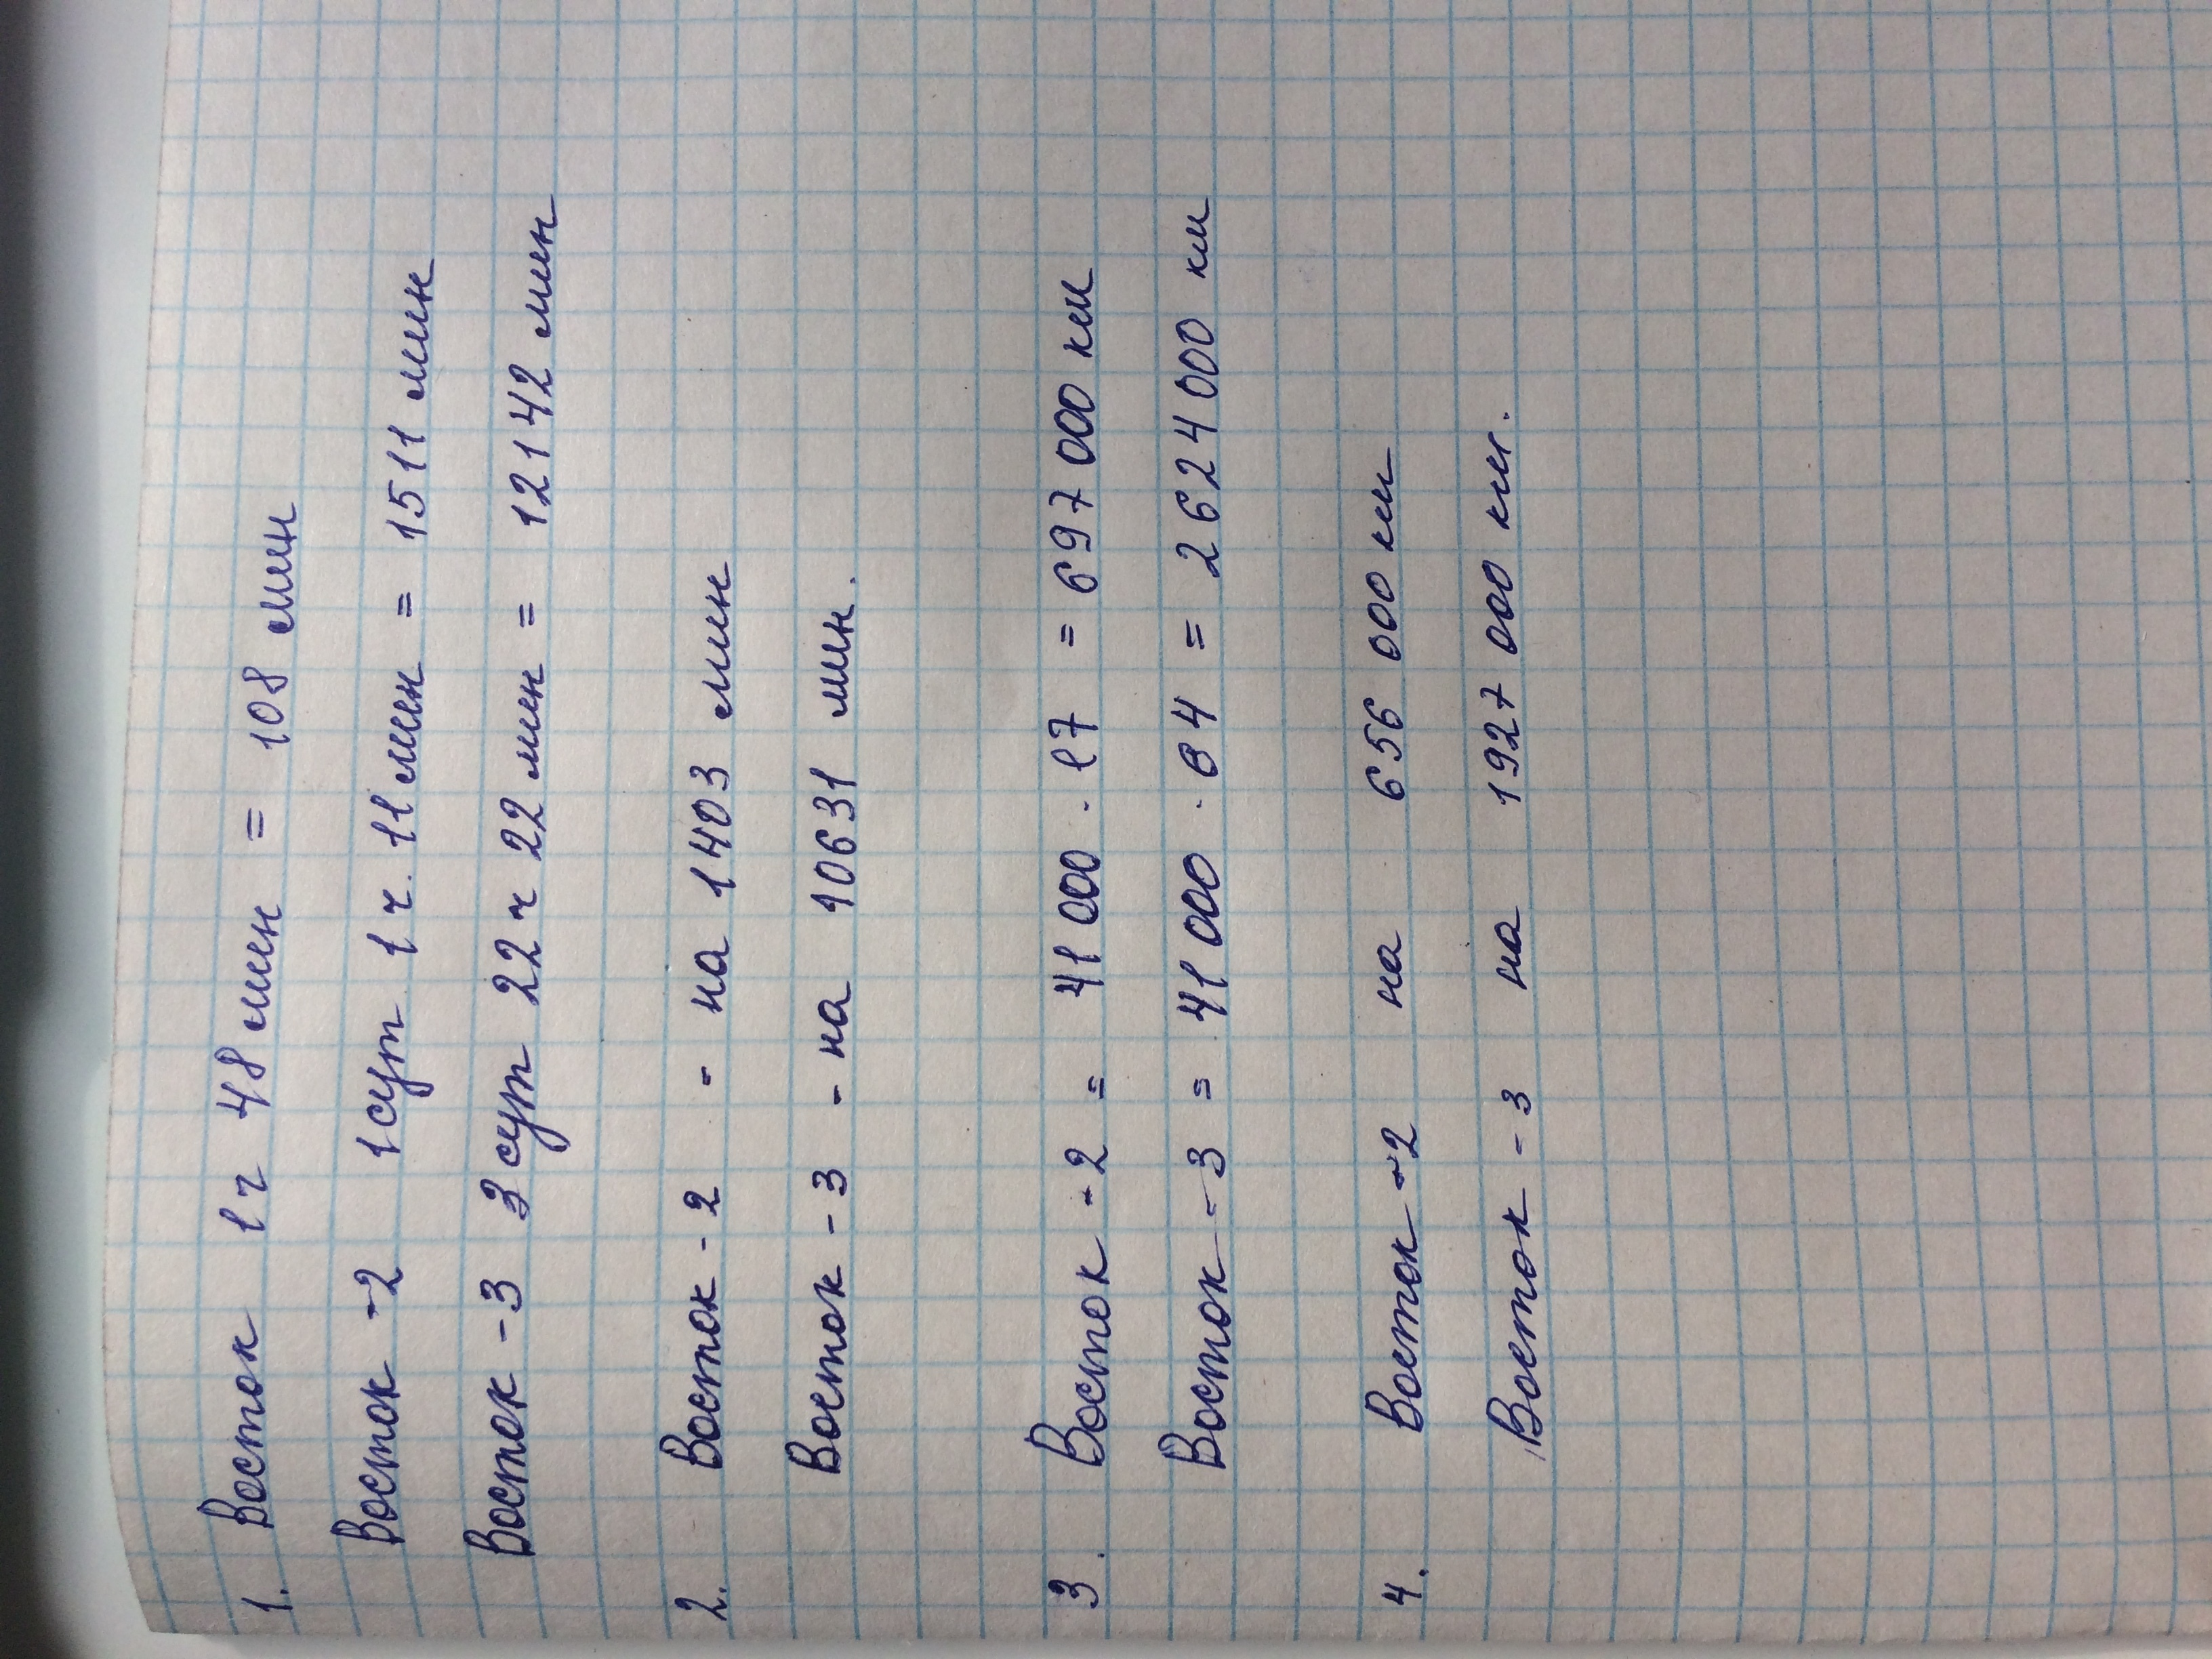 1. Восток 1ч 48мин = 108 мин
Восток -2 1сут 1 ч. 11мин = 1511 мин
Восток -3 3сут 22ч 22мин = 12142 мин
2. Восток -2 - на 1403 мин
Восток -3 - на 10631 мин.
3. Восток -2 = 41 000 . 17 = 697 000 км
Восток -3 = 41 000 . 64 = 2 624 000 км
4. Восток -2 на 656 000 км
Восток -3 на 1927 000 км.